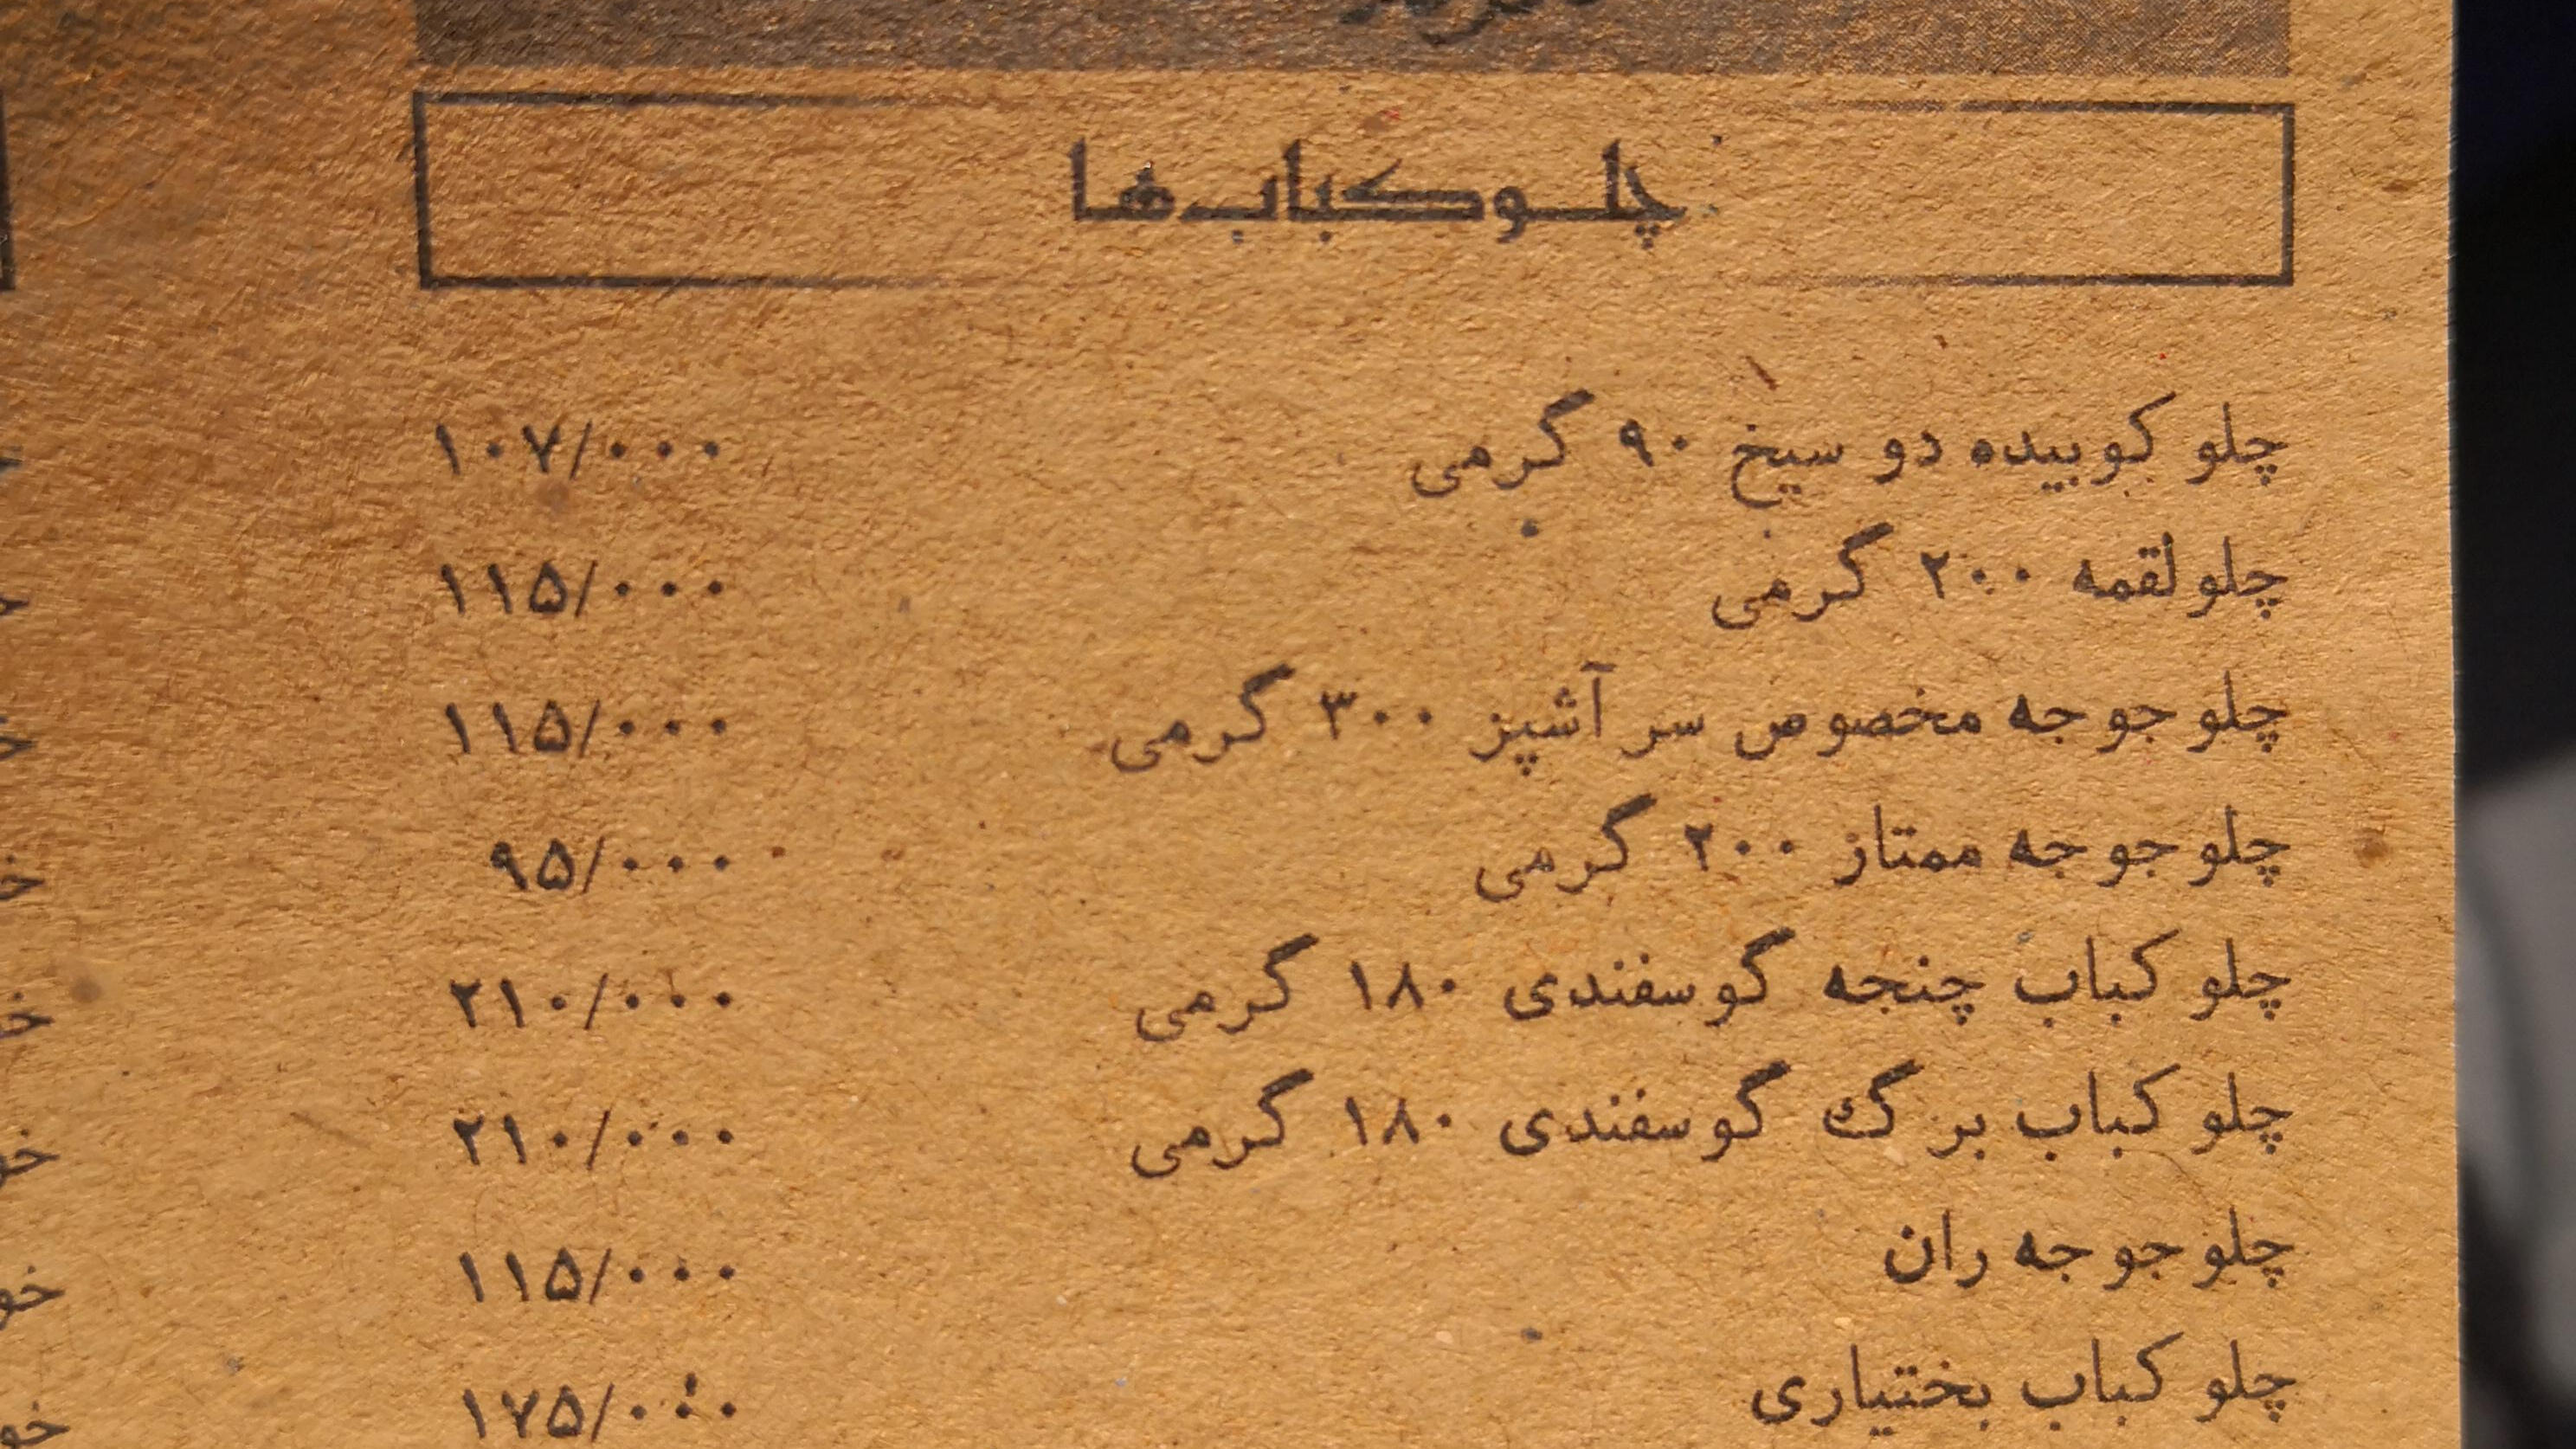 چلوکباب‌ها
چلو کوبیده دو سیخ ۹۰ گرمی ۱۰۷/۰۰۰
چلو لقمه ۲۰۰ گرمی ۱۱۵/۰۰۰
چلو جوجه مخصوص سر آشپز ۳۰۰ گرمی ۱۱۵/۰۰۰
چلو جوجه ممتاز ۲۰۰ گرمی ۹۵/۰۰۰
چلو کباب چنجه گوسفندی ۱۸۰ گرمی ۲۱۰/۰۰۰
چلو کباب برگ گوسفندی ۱۸۰ گرمی ۲۱۰/۰۰۰
چلو جوجه ران ۱۱۵/۰۰۰
چلو کباب بختیاری ۱۷۵/۰۰۰